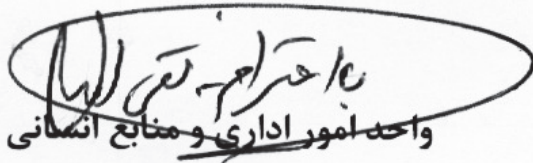 با احترام
واحد امور اداری و منابع انسانی